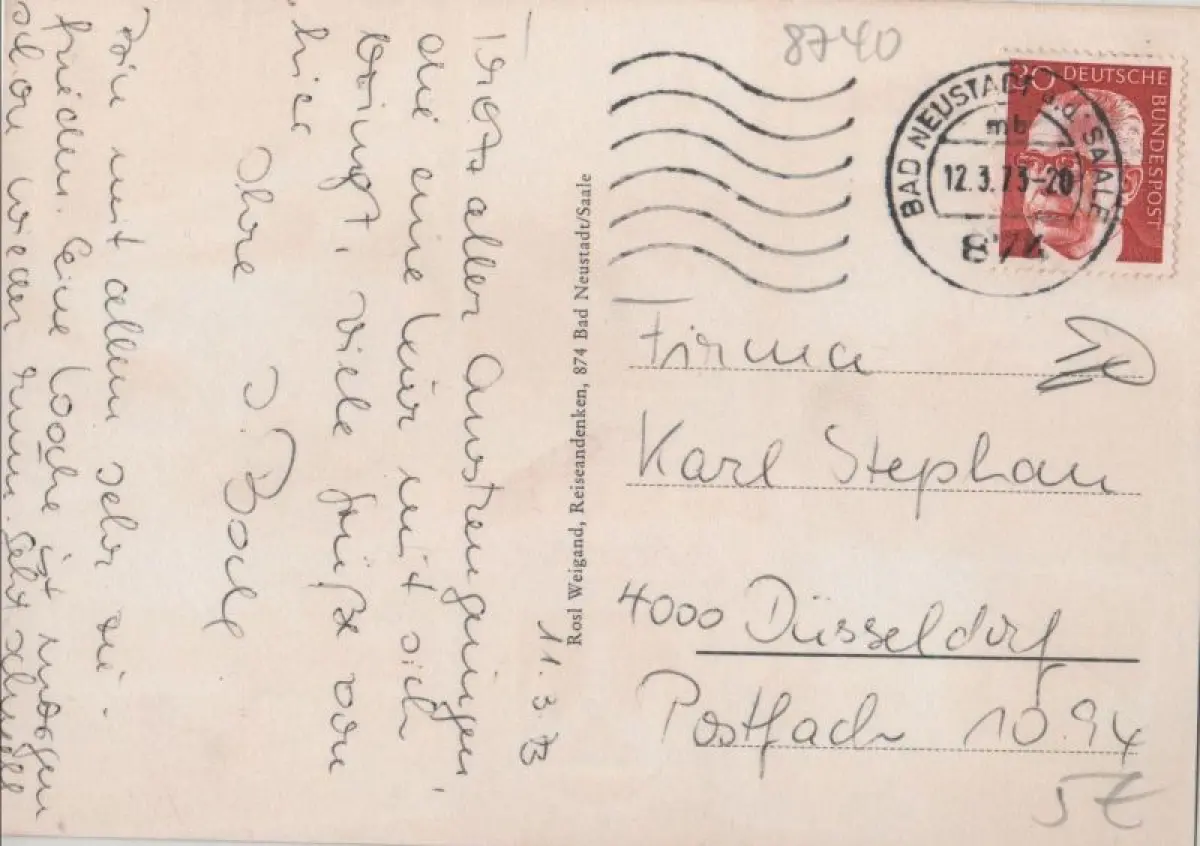 11.3.73
Trotz aller Anstrengungen,
die eine Kur mit sich
bringt, viele Grüße von
hier
Ihre
Bin mit allem sehr zu-
frieden. Eine Woche ist morgen
schon wieder rum. Geht schnell
Rosl Weigand, Reiseandenken, 874 Bad Neustadt/Saale
8740
30 DEUTSCHE BUNDESPOST
BAD NEUSTADT a.d. SAALE
mb
12.3.73-20
874
Firma
Karl Stephan
4000 Düsseldorf
Postfach 10 94